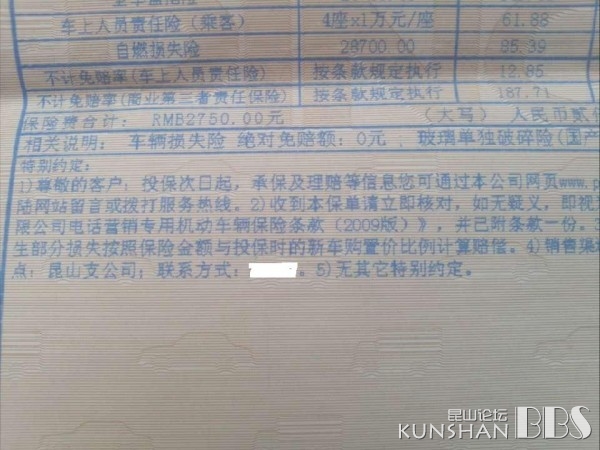 车上人员责任险（乘客） 4座x1万元/座 61.88
自燃损失险 28700.00 85.39
不计免赔率(车上人员责任险) 按条款规定执行 12.85
不计免赔率(商业第三者责任保险) 按条款规定执行 187.71
保险费合计： RMB2750.00元 （大写） 人民币贰
相关说明： 车辆损失险 绝对免赔额：0元 ，玻璃单独破碎险(国产
特别约定：
1)尊敬的客户：投保次日起，承保及理赔等信息您可通过本公司网页www.p
陆网站留言或拨打服务热线。2)收到本保单请立即核对，如无疑义，即视
限公司电话营销专用机动车辆保险条款（2009版）》，并已附条款一份。
生部分损失按照保险金额与投保时的新车购置价比例计算赔偿。4)销售渠
点：昆山支公司；联系方式： 。5)无其它特别约定。
昆山论坛
KUNSHAN BBS